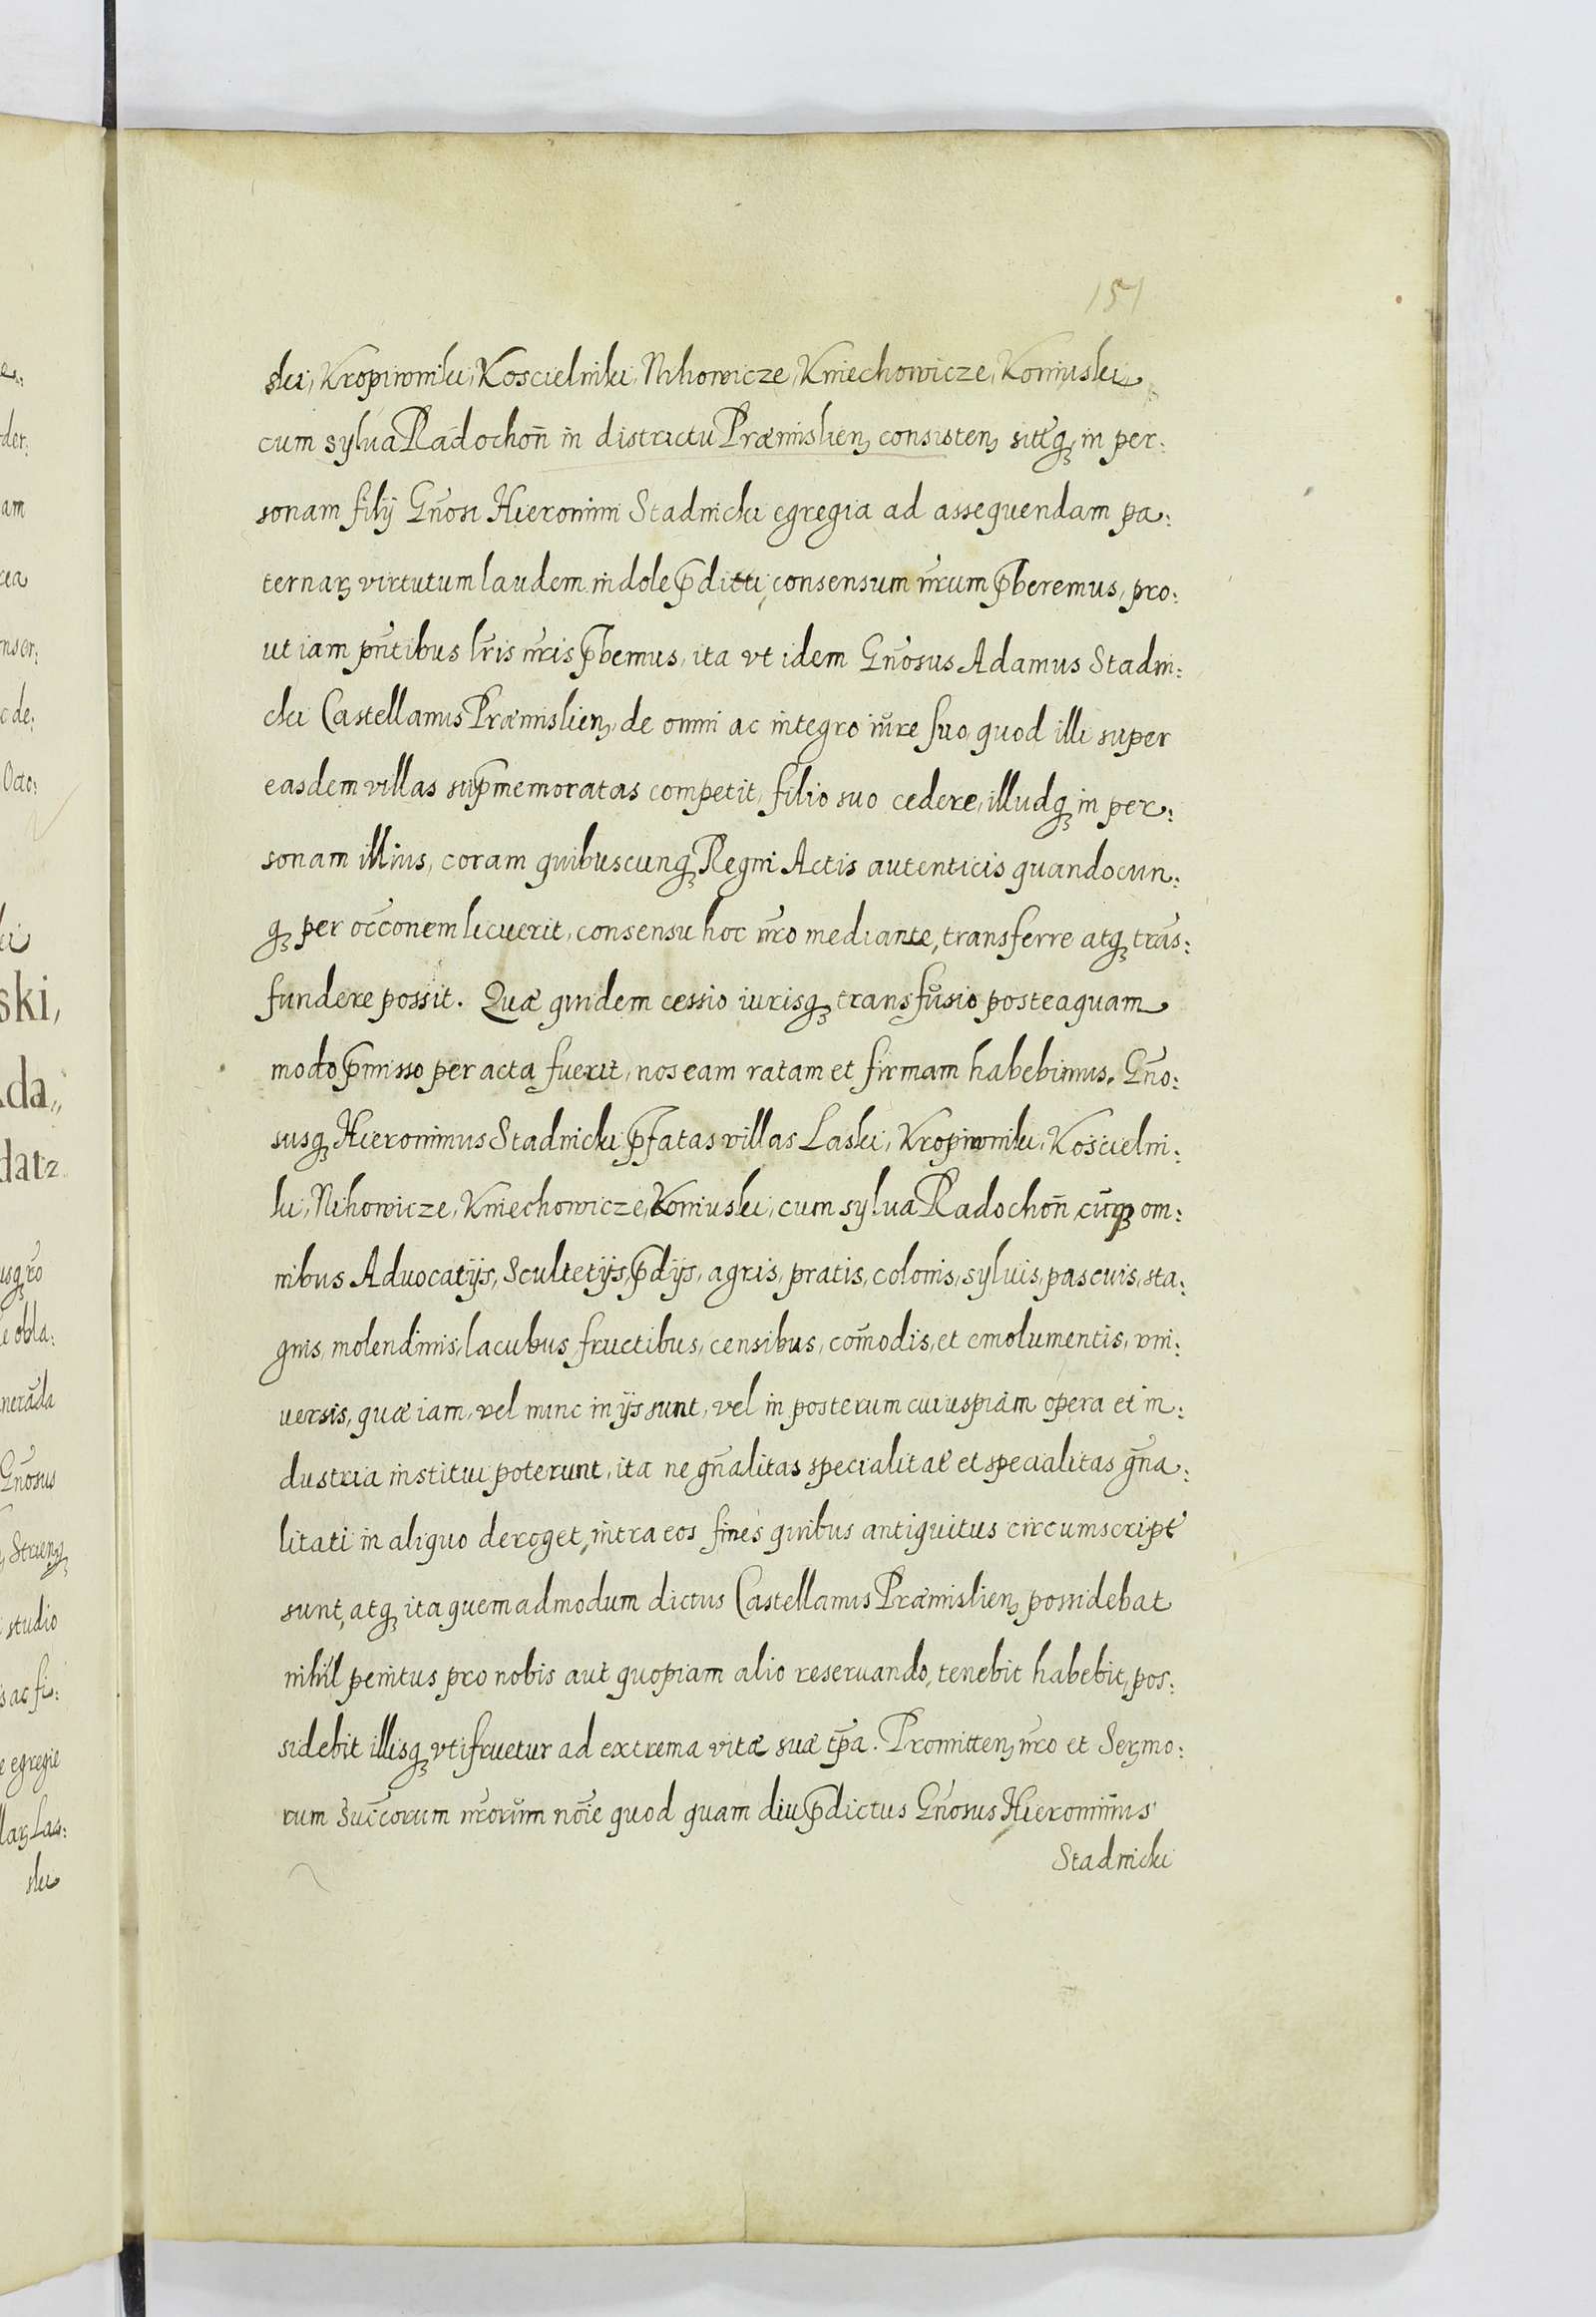 151
ski, Kropiwniki, Koscielniki, Nihowicze, Kniechowicze, Koniuski
cum sylua Radochon̄ in districtu Præmislien, consisten, sitisq, in per:
sonam filij Gn̄osi Hieronimi Stadnicki egregia ad assequendam pa:
ternar, virtutum laudem indole p̄diti, consensum nr̄um p̄beremus, pro:
ut iam pn̄tibus lr̄is nr̄is p̄bemus, ita vt idem Gn̄osus Adamus Stadni:
cki Castellanus Præmislien, de omni ac integro iŭre suo, quod illi super
easdem villas sup̄memoratas competit, filio suo cedere, illudq, in per:
sonam illius, coram quibuscunq, Regni Actis autenticis quandocun:
q, per occ̄onem licuerit, consensu hoc nr̄o mediante, transferre atq, trās:
fundere possit. Quæ quidem cessio iurisq, transfŭsio posteaquam
modo p̄misso peracta fuerit, nos eam ratam et firmam habebimus. Gn̄o:
susq, Hieronimus Stadnicki p̄fatas villas Laski, Kropiwniki, Koscielni:
ki, Nihowicze, Kniechowicze, Koniuski, cum sylua Radochon̄, cūq, om:
nibus Aduocatijs, Scultetijs, p̄dijs, agris, pratis, colonis, syluis, pascuis, sta:
gnis, molendinis, lacubus, fructibus, censibus, com̄odis, et emolumentis, vni:
uersis, quæ iam, vel nunc in ijs sunt, vel in posterum cuiuspiam opera et in:
dustria institui poterunt, ita ne gn̄alitas specialitat̄ et specialitas gn̄a:
litati in aliquo deroget, intra eos fines quibus antiquitus circumscript̄
sunt, atq, ita quemadmodum dictus Castellanus Præmislien, possidebat
nihil penitus pro nobis aut quopiam alio reseruando, tenebit habebit, pos:
sidebit illisq, vtifruetur ad extrema vitæ suæ tp̄a. Promitten, nr̄o et Ser,mo:
rum Succ̄orum nr̄orŭm no͞ie quod quam diu p̄dictus Gn̄osus Hieronimus
Stadnicki